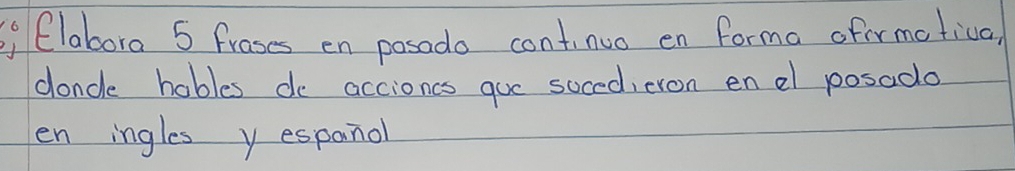 Elabora 5 frases en pasado continuo en forma afirmativa,
donde hables de acciones que sucedieron en el pasado
en ingles y español